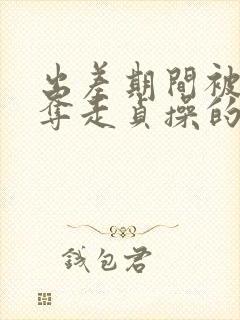 出差期間被
奪走貞操的
錢包君